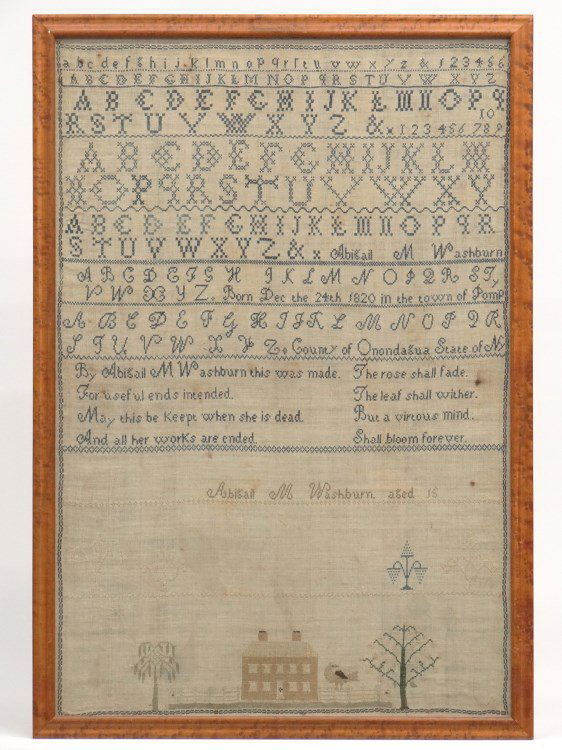 a b c d e f g h i j k l m n o p q r ſ t u v w x y z & 1 2 3 4 5 6
A B C D E F G H I J K L M N O P Q R S T U V W X Y Z
A B C D E F G H I J K L M N O P Q
R S T U V W X Y Z & x 1 2 3 4 5 6 7 8 9 10
A B C D E F G H I J K L M
N O P Q R S T U V W X Y
A B C D E F G H I J K L M N O P Q R
S T U V W X Y Z & x Abigail M Washburn
A B C D E F G H I K L M N O P Q R S T
V W X Y Z Born Dec the 24th 1820 in the town of Pomp
A B C D E F G H I J K L M N O P Q R
S T U V W X Y Z County of Onondagua State of NY
By Abigail M Washburn this was made.
For useful ends intended.
May this be Keept when she is dead.
And all her works are ended.
The rose shall fade.
The leaf shall wither.
But a virtous mind.
Shall bloom forever.
Abigail M Washburn aged 16